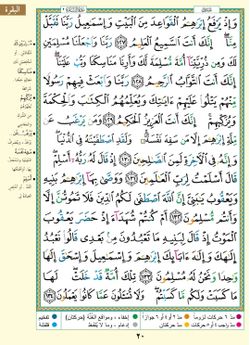 البقرة
وَإِذْ يَرْفَعُ إِبْرَٰهِـۧمُ ٱلْقَوَاعِدَ مِنَ ٱلْبَيْتِ وَإِسْمَٰعِيلُ رَبَّنَا تَقَبَّلْ
مِنَّآ إِنَّكَ أَنتَ ٱلسَّمِيعُ ٱلْعَلِيمُ ١٢٧ رَبَّنَا وَٱجْعَلْنَا مُسْلِمَيْنِ
لَكَ وَمِن ذُرِّيَّتِنَآ أُمَّةً مُّسْلِمَةً لَّكَ وَأَرِنَا مَنَاسِكَنَا وَتُبْ عَلَيْنَآ
إِنَّكَ أَنتَ ٱلتَّوَّابُ ٱلرَّحِيمُ ١٢٨ رَبَّنَا وَٱبْعَثْ فِيهِمْ رَسُولًا
مِّنْهُمْ يَتْلُوا۟ عَلَيْهِمْ ءَايَٰتِكَ وَيُعَلِّمُهُمُ ٱلْكِتَٰبَ وَٱلْحِكْمَةَ
وَيُزَكِّيهِمْ إِنَّكَ أَنتَ ٱلْعَزِيزُ ٱلْحَكِيمُ ١٢٩ وَمَن يَرْغَبُ عَن
مِّلَّةِ إِبْرَٰهِـۧمَ إِلَّا مَن سَفِهَ نَفْسَهُۥ وَلَقَدِ ٱصْطَفَيْنَٰهُ فِى ٱلدُّنْيَا
وَإِنَّهُۥ فِى ٱلْءَاخِرَةِ لَمِنَ ٱلصَّٰلِحِينَ ١٣٠ إِذْ قَالَ لَهُۥ رَبُّهُۥٓ أَسْلِمْ
قَالَ أَسْلَمْتُ لِرَبِّ ٱلْعَٰلَمِينَ ١٣١ وَوَصَّىٰ بِهَآ إِبْرَٰهِـۧمُ بَنِيهِ
وَيَعْقُوبُ يَٰبَنِىَّ إِنَّ ٱللَّهَ ٱصْطَفَىٰ لَكُمُ ٱلدِّينَ فَلَا تَمُوتُنَّ إِلَّا
وَأَنتُم مُّسْلِمُونَ ١٣٢ أَمْ كُنتُمْ شُهَدَآءَ إِذْ حَضَرَ يَعْقُوبَ
ٱلْمَوْتُ إِذْ قَالَ لِبَنِيهِ مَا تَعْبُدُونَ مِنۢ بَعْدِى قَالُوا۟ نَعْبُدُ
إِلَٰهَكَ وَإِلَٰهَ ءَابَآئِكَ إِبْرَٰهِـۧمَ وَإِسْمَٰعِيلَ وَإِسْحَٰقَ إِلَٰهًا
وَٰحِدًا وَنَحْنُ لَهُۥ مُسْلِمُونَ ١٣٣ تِلْكَ أُمَّةٌ قَدْ خَلَتْ لَهَا
مَا كَسَبَتْ وَلَكُم مَّا كَسَبْتُمْ وَلَا تُسْـَٔلُونَ عَمَّا كَانُوا۟ يَعْمَلُونَ ١٣٤
٢٠